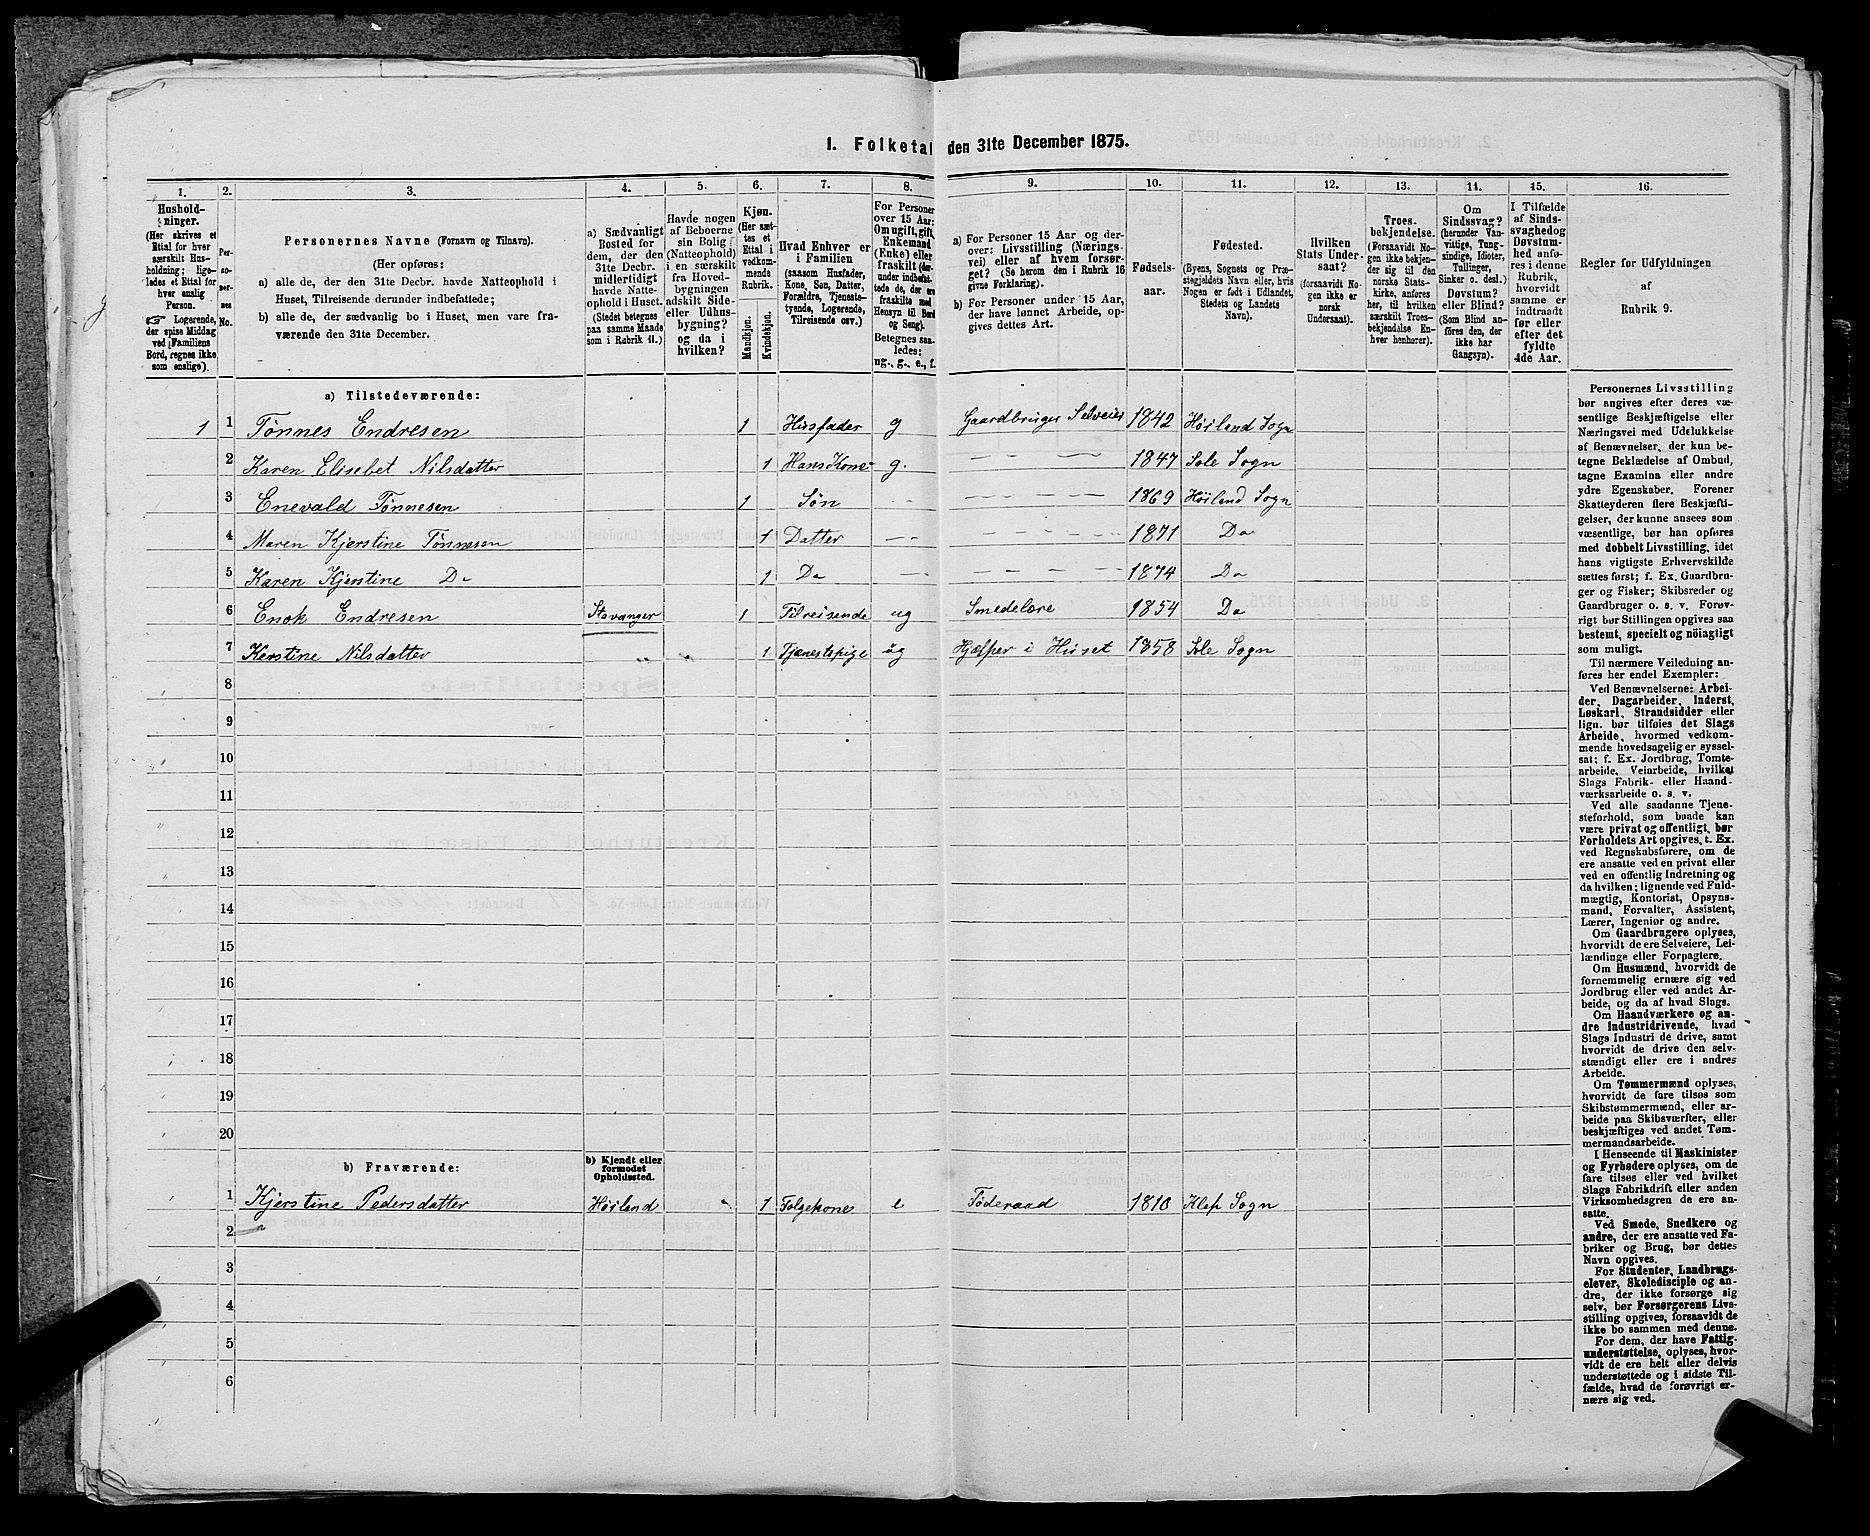 1. Folketal den 31te December 1875.
1. 2. 3. 4. 5. 6. 7. 8. 9. 10. 11. 12. 13. 14. 15. 16.
Hushold-
ninger.
(Her skrives et
Ettal for hver
særskilt Hus-
holdning; lige-
ledes et Ettal for
hver enslig
Person.
☞ Logerende,
der spise Middag
ved Familiens
Bord, regnes ikke
som enslige).
Per-
so-
ner-
nes
No.
Personernes Navne (Fornavn og Tilnavn).
(Her opføres:
a) alle de, der den 31te Decbr. havde Natteophold i
Huset, Tilreisende derunder indbefattede;
b) alle de, der sædvanlig bo i Huset, men vare fra-
værende den 31te December.
a) Sædvanligt
Bosted for
dem, der den
31te Decbr.
midlertidigt
havde Natte-
ophold i Huset.
(Stedet betegnes
paa samme Maade
som i Rubrik 11.)
Havde nogen
af Beboerne
sin Bolig
(Natteophold)
i en særskilt
fra Hoved-
bygningen
adskilt Side-
eller Udhus-
bygning?
og da i
hvilken?
Kjøn.
(Her sæt-
tes et
Ettal i
vedkom-
mende
Rubrik.
Mandkjøn.
Kvindekjøn.
Hvad Enhver er
i Familien
(saasom Husfader,
Kone, Søn, Datter,
Forældre, Tjeneste-
tyende, Logerende,
Tilreisende osv.)
For Personer
over 15 Aar:
Om ugift, gift,
Enkemand
(Enke) eller
fraskilt (der-
under indbefat-
tede de, der ere
fraskilte med
Hensyn til Bord
og Seng).
Betegnes saa-
ledes:
ug., g., e., f.
a) For Personer 15 Aar og der-
over: Livsstilling (Nærings-
vei) eller af hvem forsør-
get? (Se herom den i Rubrik 16
givne Forklaring).
b) For Personer under 15 Aar,
der have lønnet Arbeide, op-
gives dettes Art.
Fødsels-
aar.
Fødested.
(Byens, Sognets og Præ-
stegjeldets Navn, eller, hvis
Nogen er født i Udlandet,
Stedets og Landets
Navn).
Hvilken
Stats Under-
saat?
(forsaavidt No-
gen ikke er
norsk
Undersaat).
Troes-
bekjendelse.
(Forsaavidt No-
gen ikke bekjen-
der sig til den
norske Stats-
kirke, anføres
her, til hvilken
særskilt Troes-
bekjendelse En-
hver henhører).
Om
Sindssvag?
(herunder Van-
vittige, Tung-
sindige, Idioter,
Tullinger,
Sinker o. desl.)
Døvstum?
eller Blind?
(Som Blind an-
føres den, der
ikke har
Gangsyn).
I Tilfælde
af Sinds-
svaghed og
Døvstum-
hed anfø-
res i denne
Rubrik,
hvorvidt
samme er
indtraadt
før eller
efter det
fyldte
4de Aar.
Regler for Udfyldningen
af
Rubrik 9.
a) Tilstedeværende:
1 1 Tønnes Endresen 1 Husfader g Gaardbruger Selveier 1842 Høiland Sogn
2 Karen Elisebet Nilsdatter 1 Hans Kone g. — — — 1847 Sole Sogn
3 Enevald Tønnesen 1 Søn — — — — — 1869 Høiland Sogn
4 Maren Kjerstine Tønnesen 1 Datter — — 1871 Do
5 Karen Kjerstine Do 1 Do — — 1874 Do
6 Enok Endresen Stavanger 1 Tilreisende ug Smedelære 1854 Do
7 Kerstine Nilsdatter " " 1 Tjenestepige ug Hjelper i Huset 1858 Sole Sogn
8
9
10
11
12
13
14
15
16
17
18
19
20
b) Fraværende:
b) Kjendt eller
formodet
Opholdssted.
1 Kjerstine Pedersdatter Høiland 1 Folgekone e Føderaad 1810 Klep Sogn
2 "
3
4
5
6
Personernes Livsstilling
bør angives efter deres væ-
sentlige Beskjæftigelse eller
Næringsvei med Udelukkelse
af Benævnelser, der kun be-
tegne Beklædelse af Ombud,
tagne Examina eller andre
ydre Egenskaber. Forener
Skatteyderen flere Beskjæfti-
gelser, der kunne ansees som
væsentlige, bør han opføres
med dobbelt Livsstilling, idet
hans vigtigste Erhvervskilde
sættes først; f. Ex. Gaardbru-
ger og Fisker; Skibsreder og
Gaardbruger o. s. v. Forøv-
rigt bør Stillingen opgives saa
bestemt, specielt og nöiagtigt
som muligt.
Til nærmere Veiledning an-
føres her endel Exempler:
Ved Benævnelserne: Arbei-
der, Dagarbeider, Inderst,
Løskarl, Strandsidder eller
lign. bør tilføies det Slags
Arbeide, hvormed vedkom-
mende hovedsagelig er syssel-
sat; f. Ex. Jordbrug, Tomte-
arbeide, Veiarbeide, hvilket
Slags Fabrik- eller Haand-
værksarbeide o. s. v.
Ved alle saadanne Tjene-
steforhold, som baade kan
være privat og offentligt, bør
Forholdets Art opgives, t. Ex.
ved Regnskabsførere, om de
ere ansatte ved en privat eller
ved en offentlig Indretning og
da hvilken; lignende ved Fuld-
mægtig, Kontorist, Opsyns-
mand, Forvalter, Assistent,
Lærer, Ingeniør og andre.
Om Gaardbrugere oplyses,
hvorvidt de ere Selveiere, Lei-
lændinge eller Forpagtere.
Om Husmænd, hvorvidt de
fornemmelig ernære sig ved
Jordbrug eller ved andet Ar-
beide, og da af hvad Slags.
Om Haandværkere og an-
dre Industridrivende, hvad
Slags Industri de drive, samt
hvorvidt de drive den selv-
stændigt eller ere i andres
Arbeide.
Om Tømmermænd oplyses,
hvorvidt de fare tilsøs som
Skibstømmermænd, eller ar-
beide paa Skibsværfter, eller
beskjæftiges ved andet Tøm-
mermandsarbeide.
I Henseende til Maskinister
og Fyrbødere oplyses, om de
fare tilsøs eller ved hvilket
Slags Fabrikdrift eller anden
Virksomhedsgren de ere an-
satte.
Ved Smede, Snedkere og
andre, der ere ansatte ved Fa-
briker og Brug, bør dettes
Navn opgives.
For Studenter, Landbrugs-
elever, Skoledisciple og an-
dre, der ikke forsørge sig
selv, bør Forsørgerens Livs-
stilling opgives, forsaavidt de
ikke bo sammen med denne.
For dem, der have Fattig-
understøttelse, oplyses, hvor-
vidt de ere helt eller delvis
understøttede og i sidste Til-
fælde, hvad de forøvrigt er-
nære sig ved.